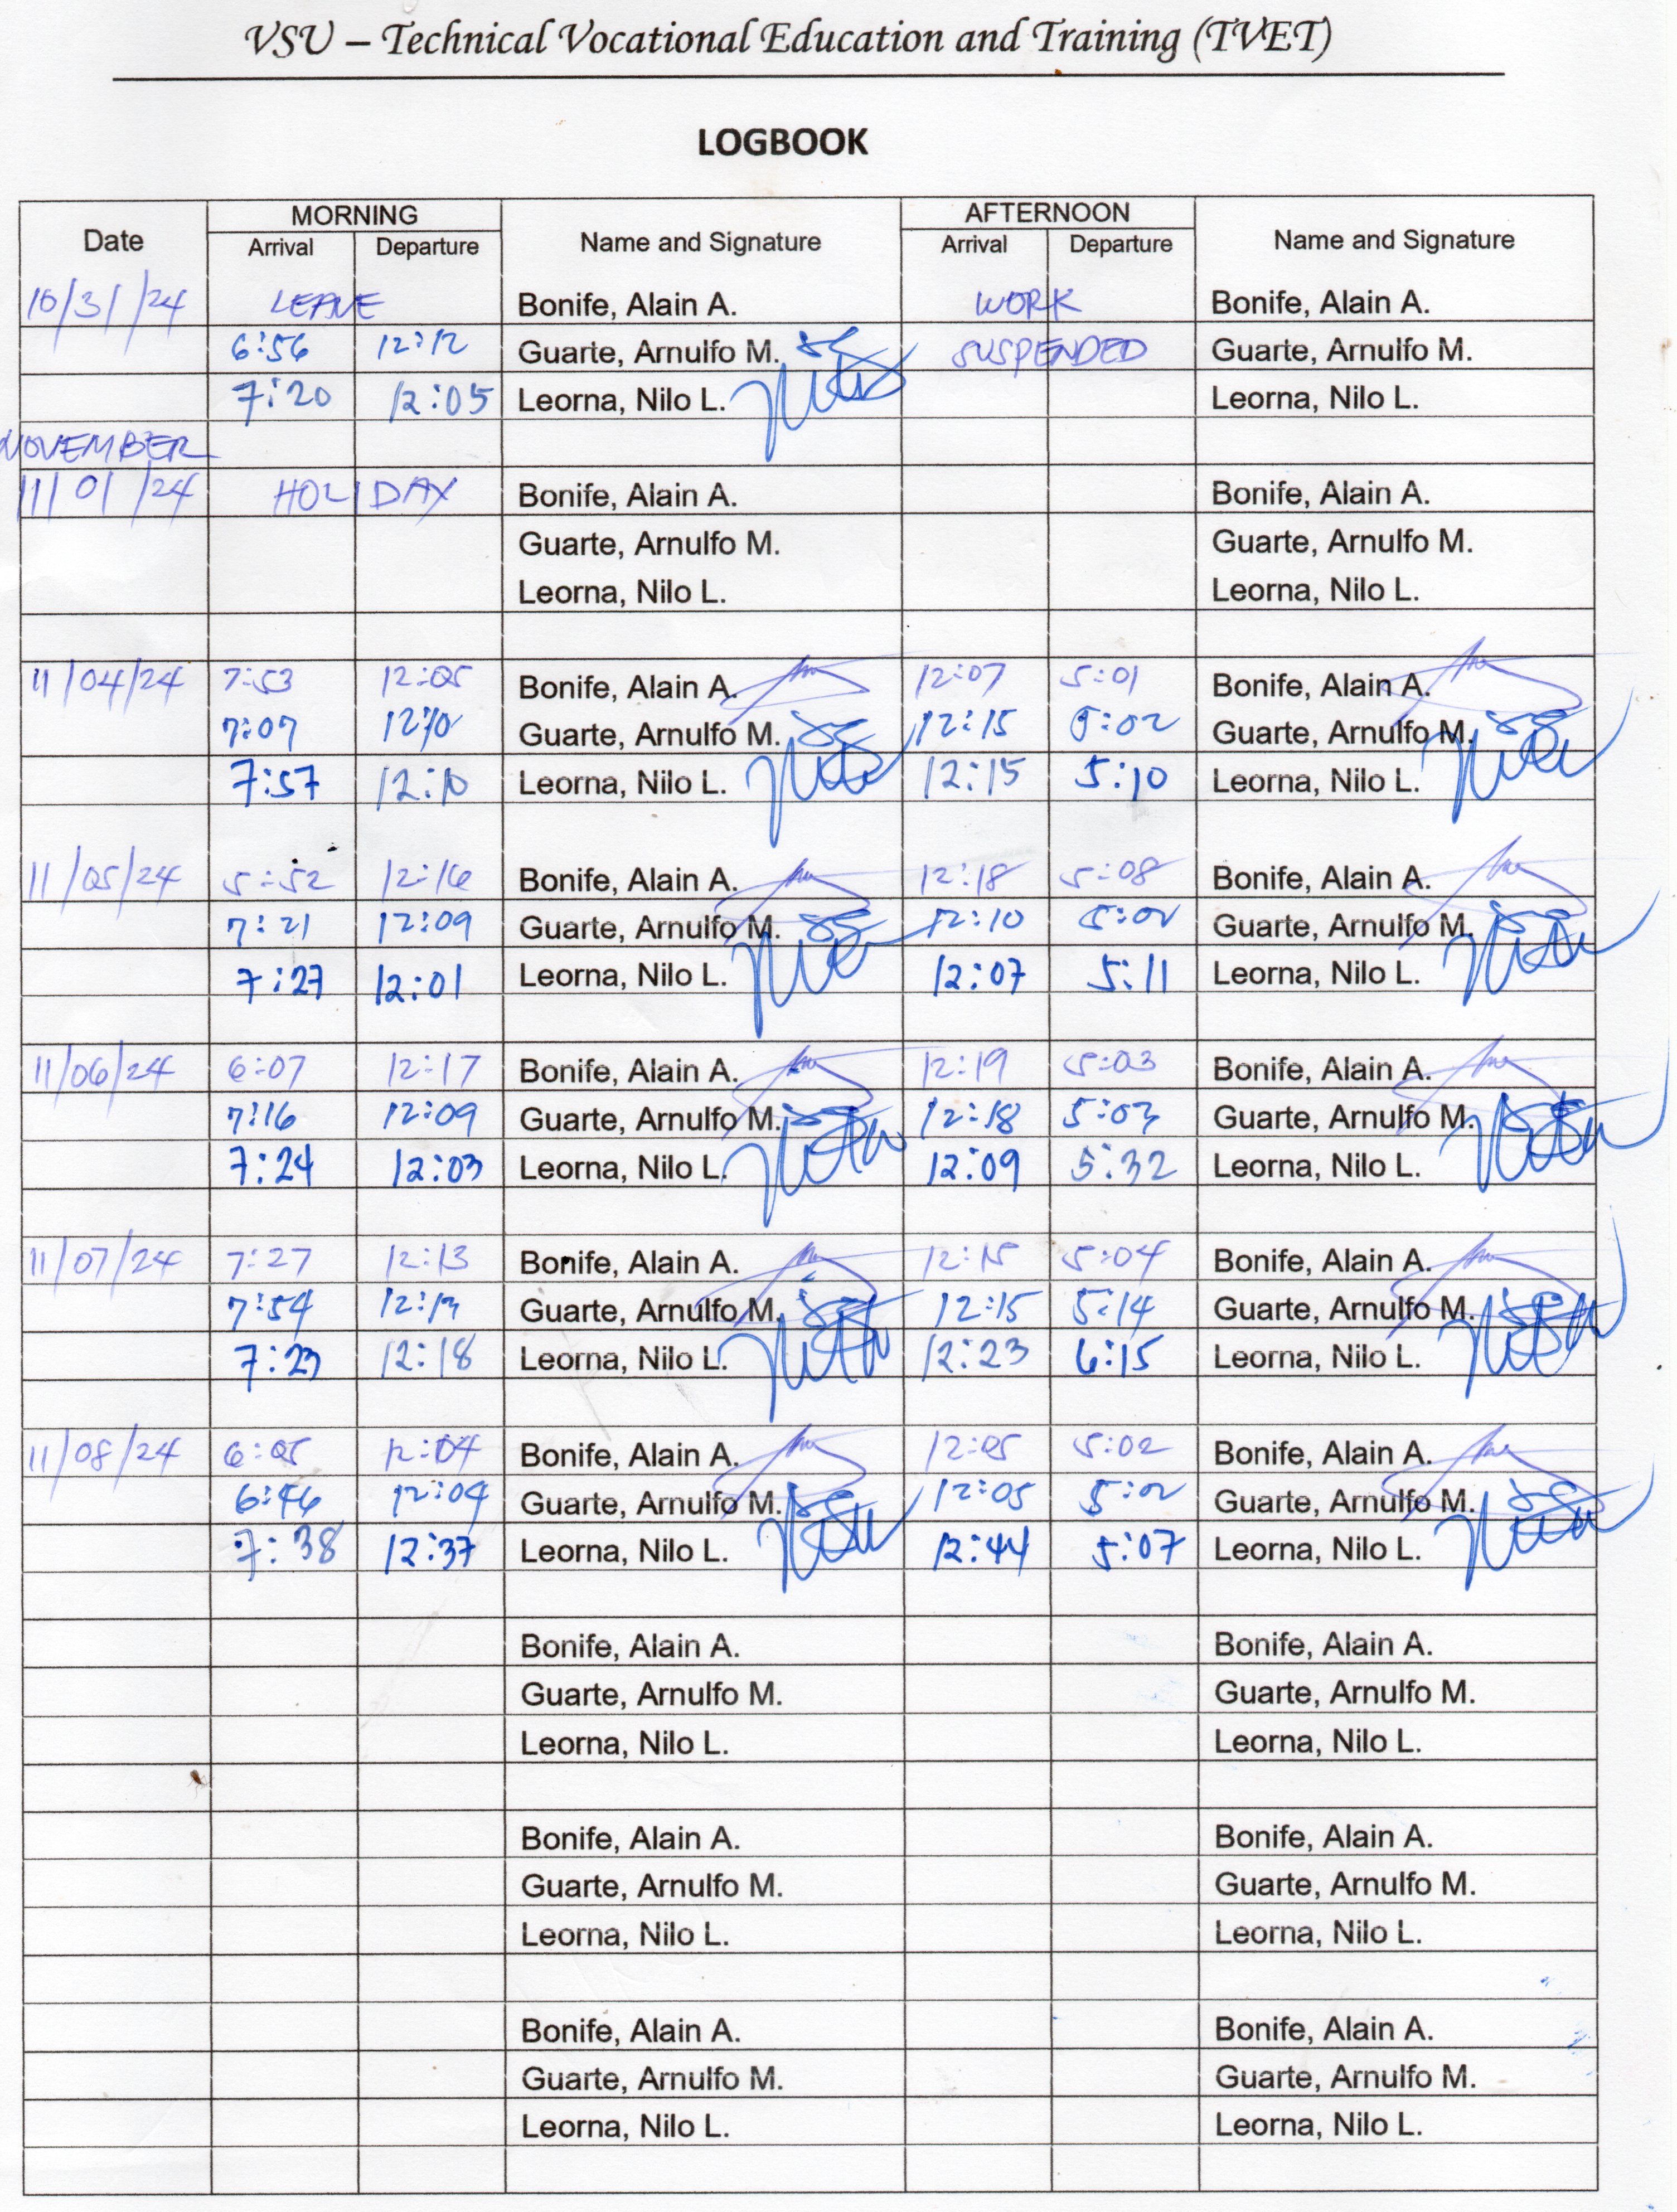 VSU – Technical Vocational Education and Training (TVET)
LOGBOOK
Date MORNING Name and Signature AFTERNOON Name and Signature
Arrival Departure Arrival Departure
10/31/24 LEAVE Bonife, Alain A. WORK Bonife, Alain A.
6:56 12:12 Guarte, Arnulfo M. SUSPENDED Guarte, Arnulfo M.
7:20 12:05 Leorna, Nilo L. Leorna, Nilo L.
NOVEMBER
11/01/24 HOLIDAY Bonife, Alain A. Bonife, Alain A.
Guarte, Arnulfo M. Guarte, Arnulfo M.
Leorna, Nilo L. Leorna, Nilo L.
11/04/24 7:53 12:05 Bonife, Alain A. 12:07 5:01 Bonife, Alain A.
7:07 12:10 Guarte, Arnulfo M. 12:15 5:02 Guarte, Arnulfo M.
7:57 12:10 Leorna, Nilo L. 12:15 5:10 Leorna, Nilo L.
11/05/24 5:52 12:16 Bonife, Alain A. 12:18 5:08 Bonife, Alain A.
7:21 12:09 Guarte, Arnulfo M. 12:10 5:02 Guarte, Arnulfo M.
7:27 12:01 Leorna, Nilo L. 12:07 5:11 Leorna, Nilo L.
11/06/24 6:07 12:17 Bonife, Alain A. 12:19 5:03 Bonife, Alain A.
7:16 12:09 Guarte, Arnulfo M. 12:18 5:03 Guarte, Arnulfo M.
7:24 12:03 Leorna, Nilo L. 12:09 5:32 Leorna, Nilo L.
11/07/24 7:27 12:13 Bonife, Alain A. 12:15 5:04 Bonife, Alain A.
7:54 12:13 Guarte, Arnulfo M. 12:15 5:14 Guarte, Arnulfo M.
7:23 12:18 Leorna, Nilo L. 12:23 6:15 Leorna, Nilo L.
11/08/24 6:05 12:04 Bonife, Alain A. 12:05 5:02 Bonife, Alain A.
6:46 12:04 Guarte, Arnulfo M. 12:05 5:02 Guarte, Arnulfo M.
7:38 12:37 Leorna, Nilo L. 12:44 5:07 Leorna, Nilo L.
Bonife, Alain A. Bonife, Alain A.
Guarte, Arnulfo M. Guarte, Arnulfo M.
Leorna, Nilo L. Leorna, Nilo L.
Bonife, Alain A. Bonife, Alain A.
Guarte, Arnulfo M. Guarte, Arnulfo M.
Leorna, Nilo L. Leorna, Nilo L.
Bonife, Alain A. Bonife, Alain A.
Guarte, Arnulfo M. Guarte, Arnulfo M.
Leorna, Nilo L. Leorna, Nilo L.